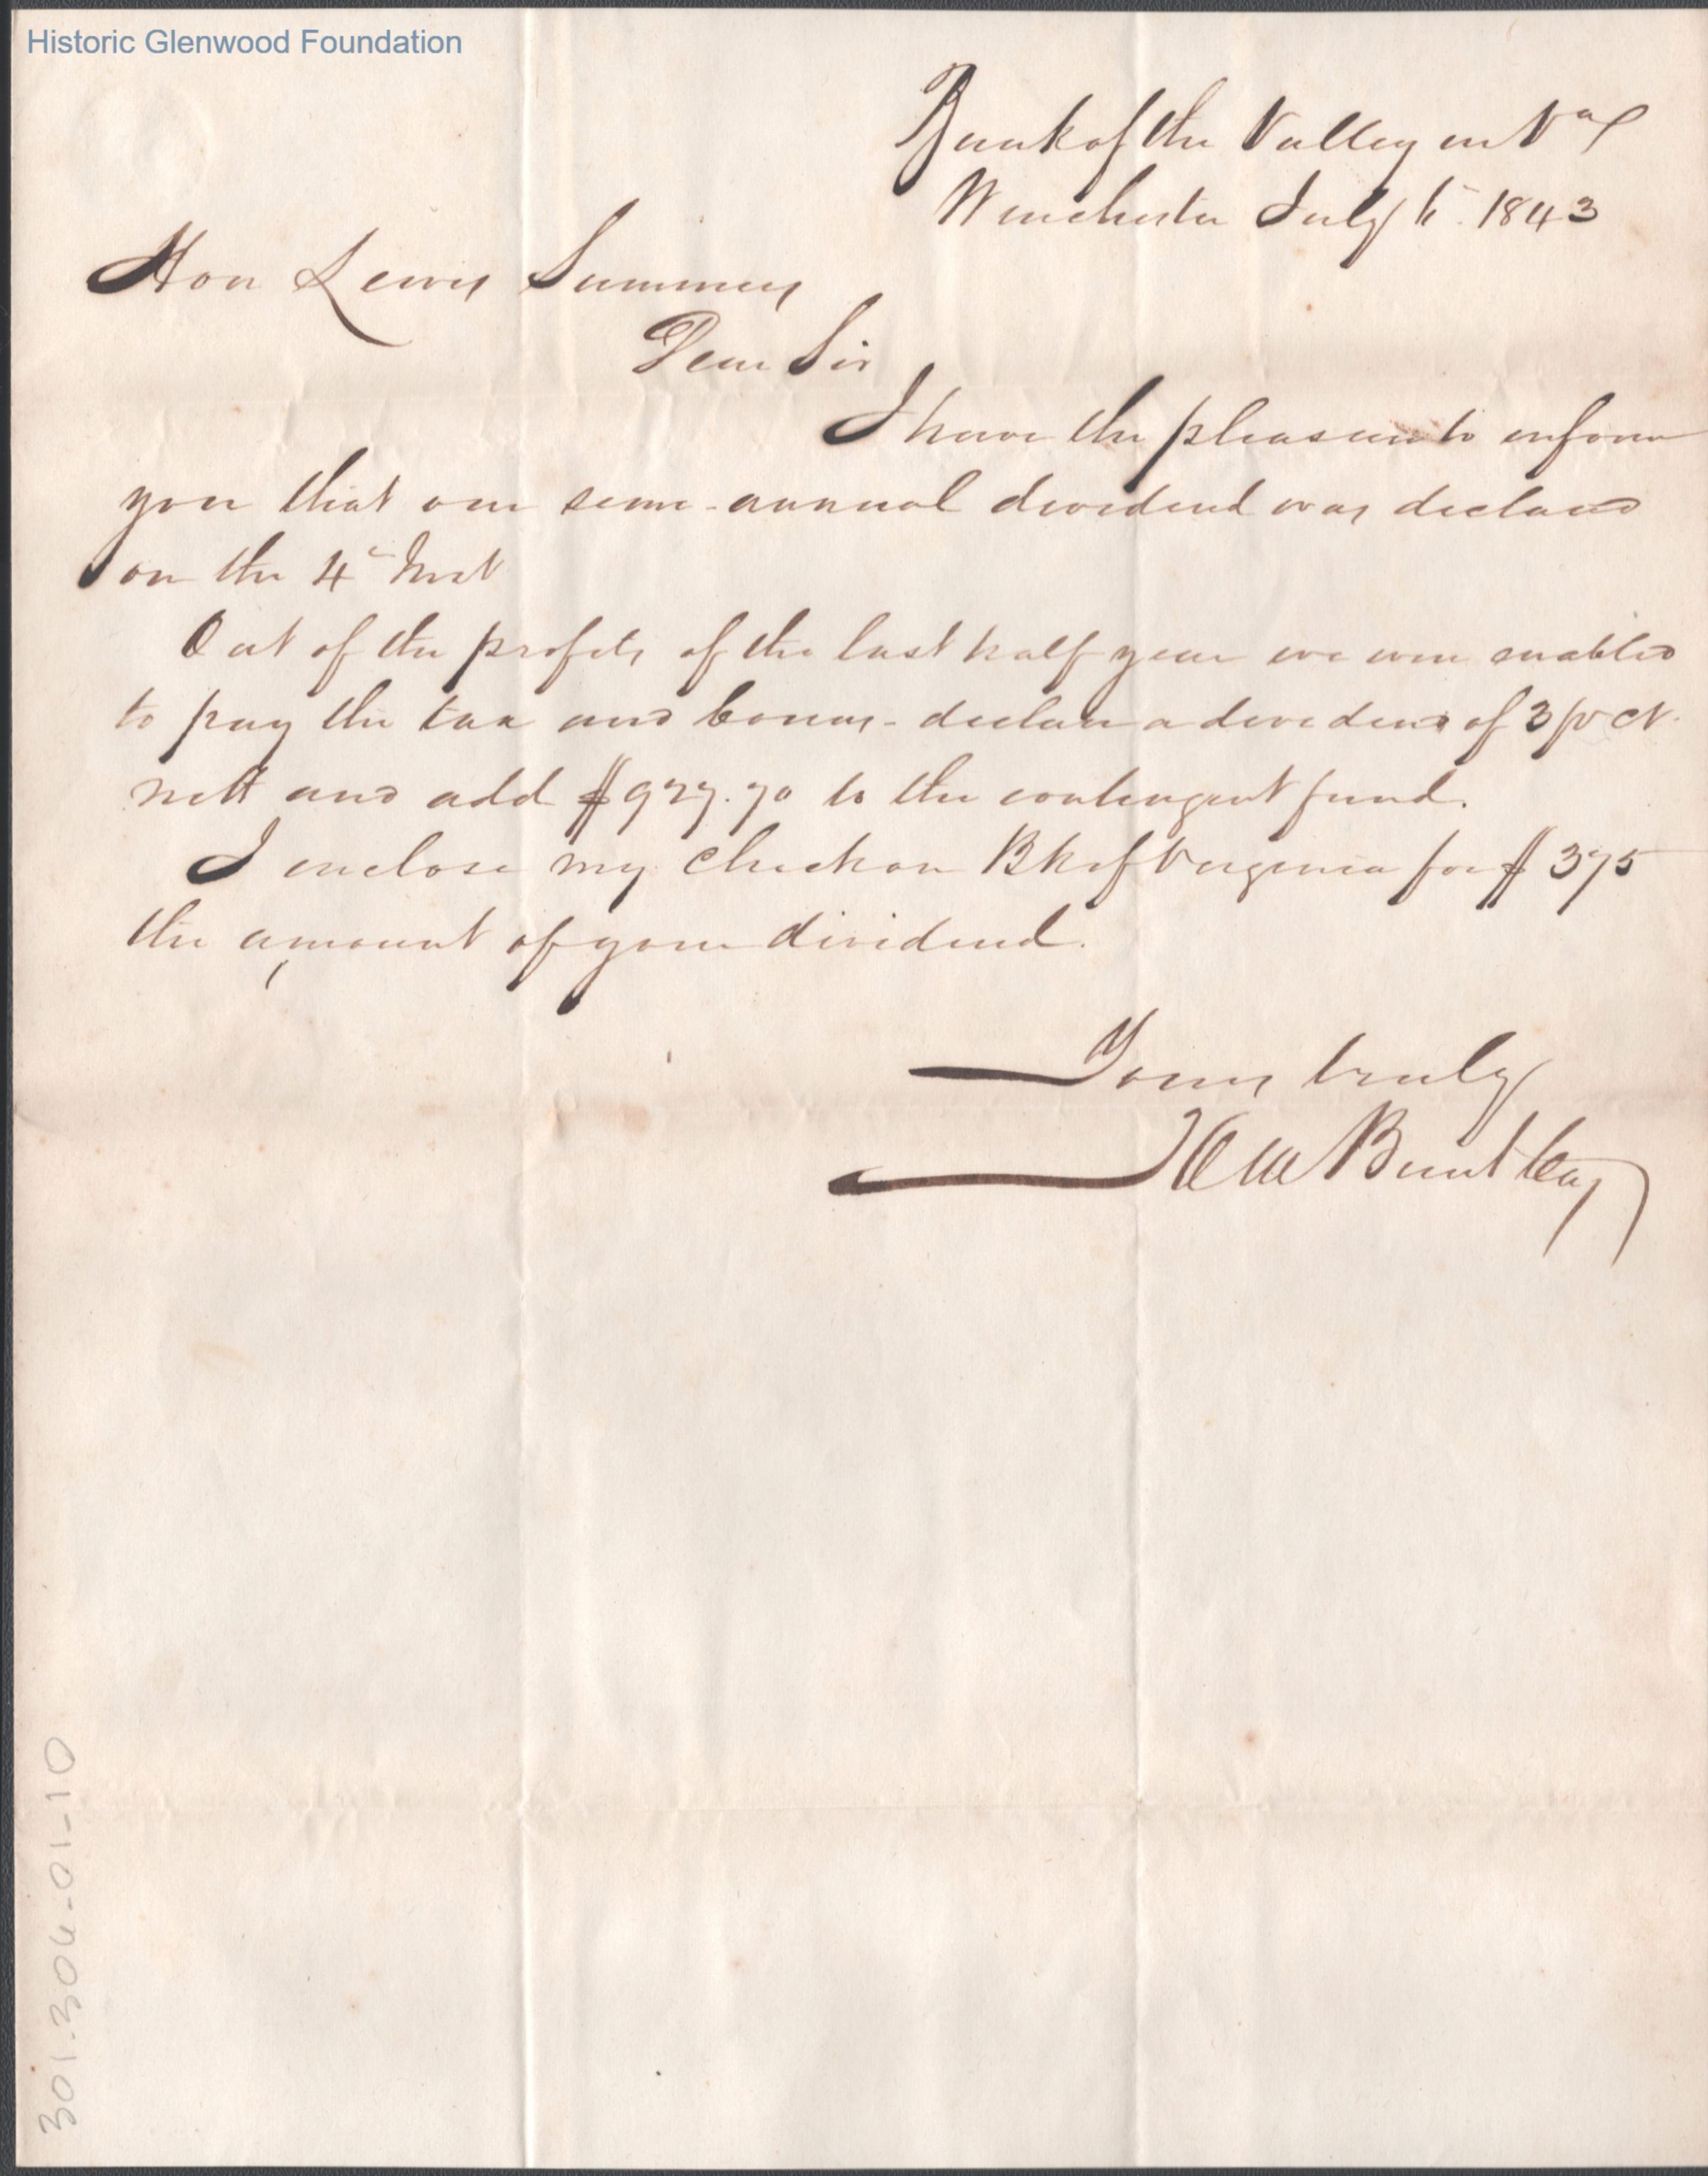 Historic Glenwood Foundation
Bank of the Valley in Va
Winchester July 6 1843
Hon Lewis Summers
Dear Sir
I have the pleasure to inform
you that our semi-annual dividend was declared
on the 4th Inst
Out of the profits of the last half year we were enabled
to pay the tax and bonus - declare a dividend of 3 pr ct.
nett and add $927.70 to the contingent fund.
I enclose my check on Bk of Virginia for $375
the amount of your dividend.
Yours truly
H M Brent Cas
301.304-01-10